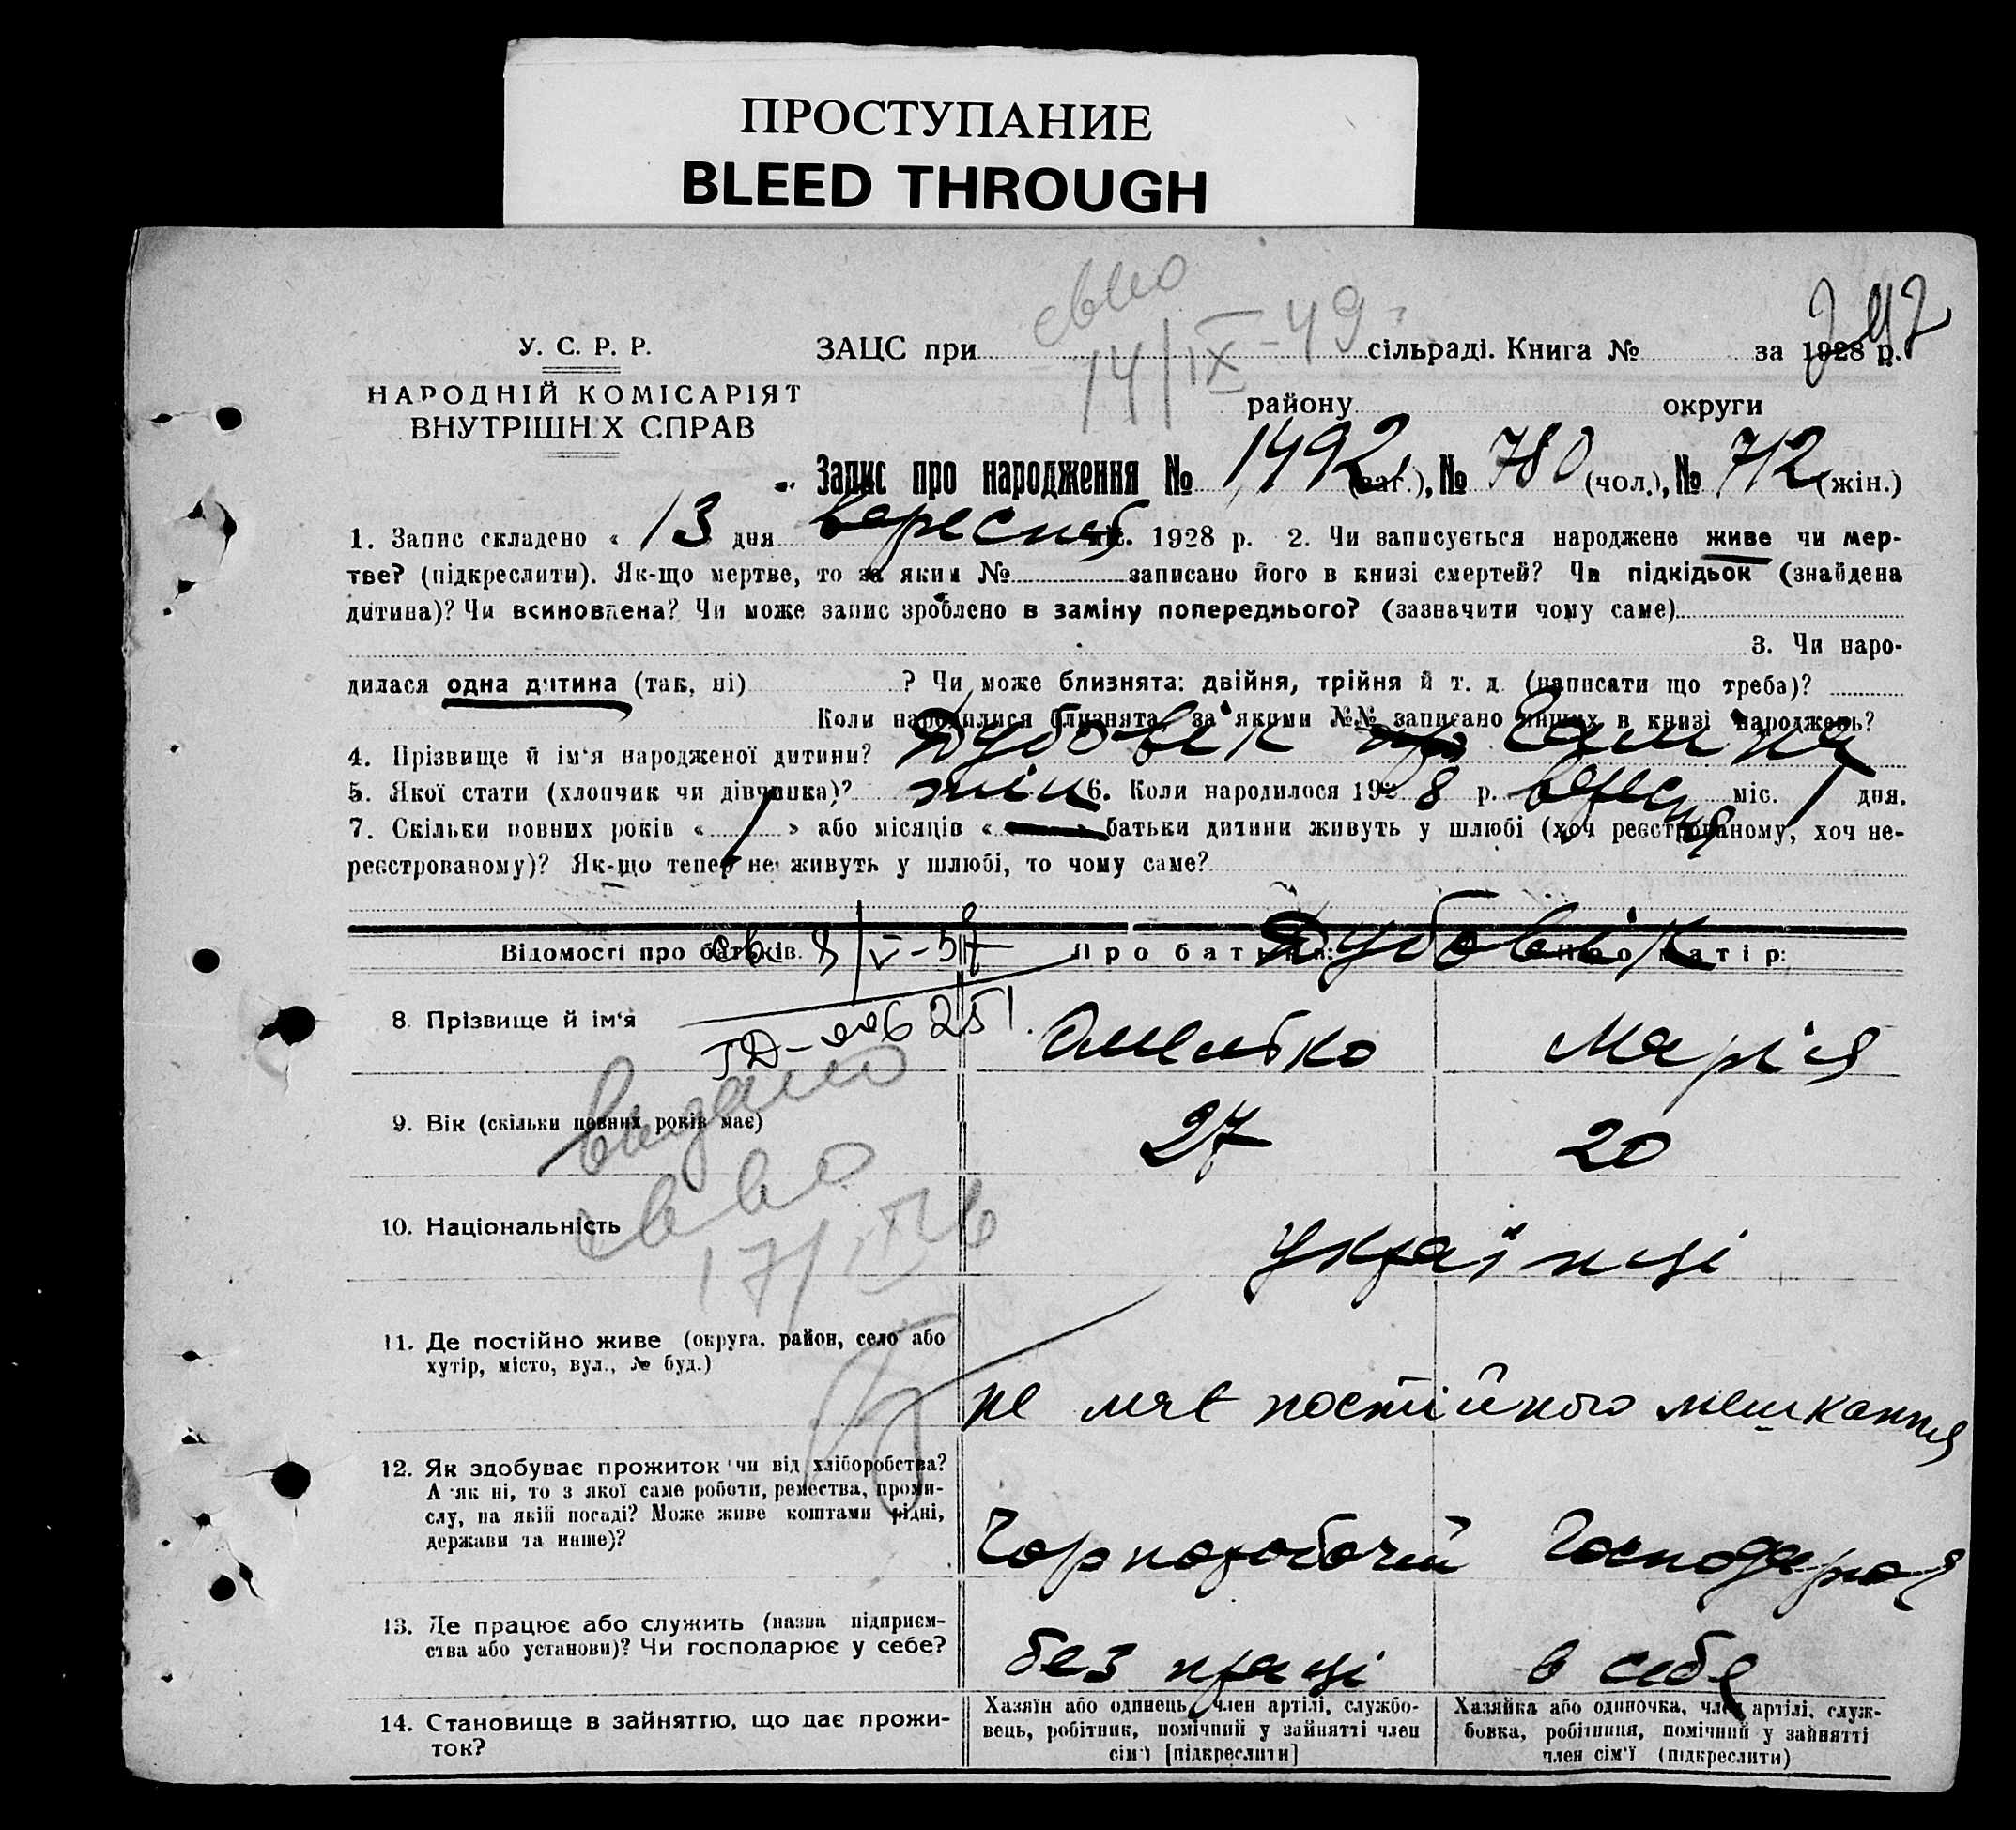 ПРОСТУПАНИЕ
BLEED THROUGH
свво
14/IX-49
242
У. С. Р. Р.
НАРОДНІЙ КОМІСАРІЯТ
ВНУТРІШНІХ СПРАВ
ЗАЦС при сільраді. Книга № за 1928 р.
району округи
Запис про народження № 1492 (заг.), № 780 (чол.), № 712 (жін.)
1. Запис складено « 13 дня вересня міс. 1928 р. 2. Чи записується народжене живе чи мер-
тве? (підкреслити). Як-що мертве, то за яким № записано його в книзі смертей? Чи підкідьок (знайдена
дитина)? Чи всиновлена? Чи може запис зроблено в заміну попереднього? (зазначити чому саме)
3. Чи наро-
дилася одна дитина (так, ні) ? Чи може близнята: двійня, трійня й т. д. (написати що треба)?
Коли народилися близнята, за якими №№ записано инших в книзі народжень?
4. Прізвище й ім'я народженої дитини? Дубовік Галина
5. Якої стати (хлопчик чи дівчинка)? жін 6. Коли народилося 1928 р. вересня міс. 1 дня.
7. Скільки повних років « 1 » або місяців « — » батьки дитини живуть у шлюбі (хоч реєстрованому, хоч не-
реєстрованому)? Як-що тепер не живуть у шлюбі, то чому саме?
Відомості про батьків. Про батька: Про матір:
св. 8/V-57
Дубовік
8. Прізвище й ім'я Омелько Марія
видано
свво
9. Вік (скільки повних років має) 27 20
10. Національність українці
11. Де постійно живе (округа, район, село або
хутір, місто, вул., № буд.)
не має постійного мешкання
12. Як здобуває прожиток чи від хліборобства?
А як ні, то з якої саме роботи, ремества, проми-
слу, на якій посаді? Може живе коштами рідні,
держави та инше)?
Чорноробочий Господарка
13. Де працює або служить (назва підприєм-
ства або установи)? Чи господарює у себе?
без праці в себе
14. Становище в зайняттю, що дає прожи-
ток?
Хазяїн або одинець, член артілі, службо-
вець, робітник, помічний у зайнятті член
сім'ї [підкреслити]
Хазяйка або одиночка, член артілі, служ-
бовка, робітниця, помічний у зайнятті
член сім'ї (підкреслити)